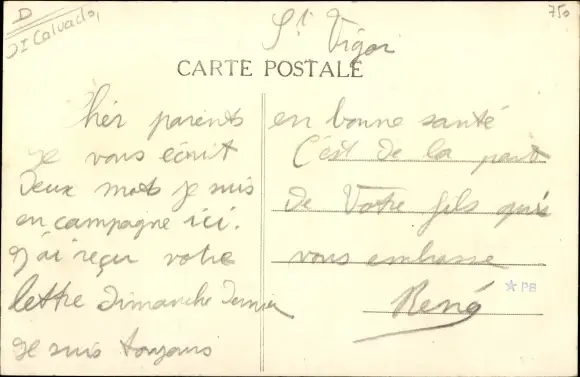 D
Calvados
750
St Vigor
CARTE POSTALE
Cher parents
je vous écrit
Deux mots je suis
en campagne ici.
J'ai reçu votre
lettre Dimanche Dernier
Je suis toujours
en bonne santé
C'est de la part
de Votre fils qui
vous embrasse
René
PB